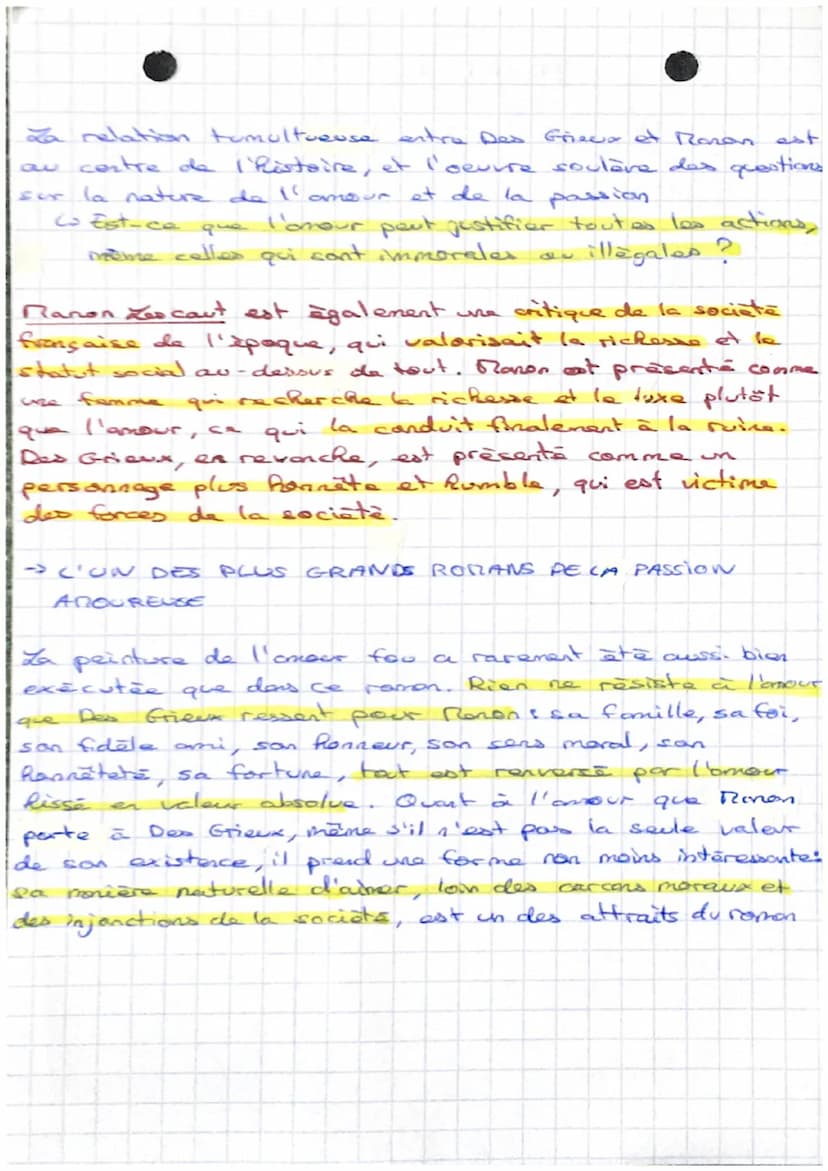 La relation tumultueuse entre Des Grieux et Manon est
au centre de l'histoire, et l'oeuvre soulève des questions
sur la nature de l'amour et de la passion
↳ Est-ce que l'amour peut justifier toutes les actions,
même celles qui sont immorales ou illégales ?
Manon Lescaut est également une critique de la société
française de l'époque, qui valorisait la richesse et le
statut social au-dessus de tout. Manon est présenté comme
une femme qui recherche la richesse et le luxe plutôt
que l'amour, ce qui la conduit finalement à la ruine.
Des Grieux, en revanche, est présenté comme un
personnage plus honnête et humble, qui est victime
des forces de la société.
→ L'UN DES PLUS GRANDS ROMANS DE LA PASSION
AMOUREUSE
La peinture de l'amour fou a rarement été aussi bien
exécutée que dans ce roman. Rien ne résiste à l'amour
que Des Grieux ressent pour Manon : sa famille, sa foi,
son fidèle ami, son honneur, son sens moral, son
honnêteté, sa fortune, tout est renversé par l'amour
hissé en valeur absolue. Quant à l'amour que Manon
porte à Des Grieux, même s'il n'est pas la seule valeur
de son existence, il prend une forme non moins intéressante :
sa manière naturelle d'aimer, loin des carcans moraux et
des injonctions de la société, est un des attraits du roman